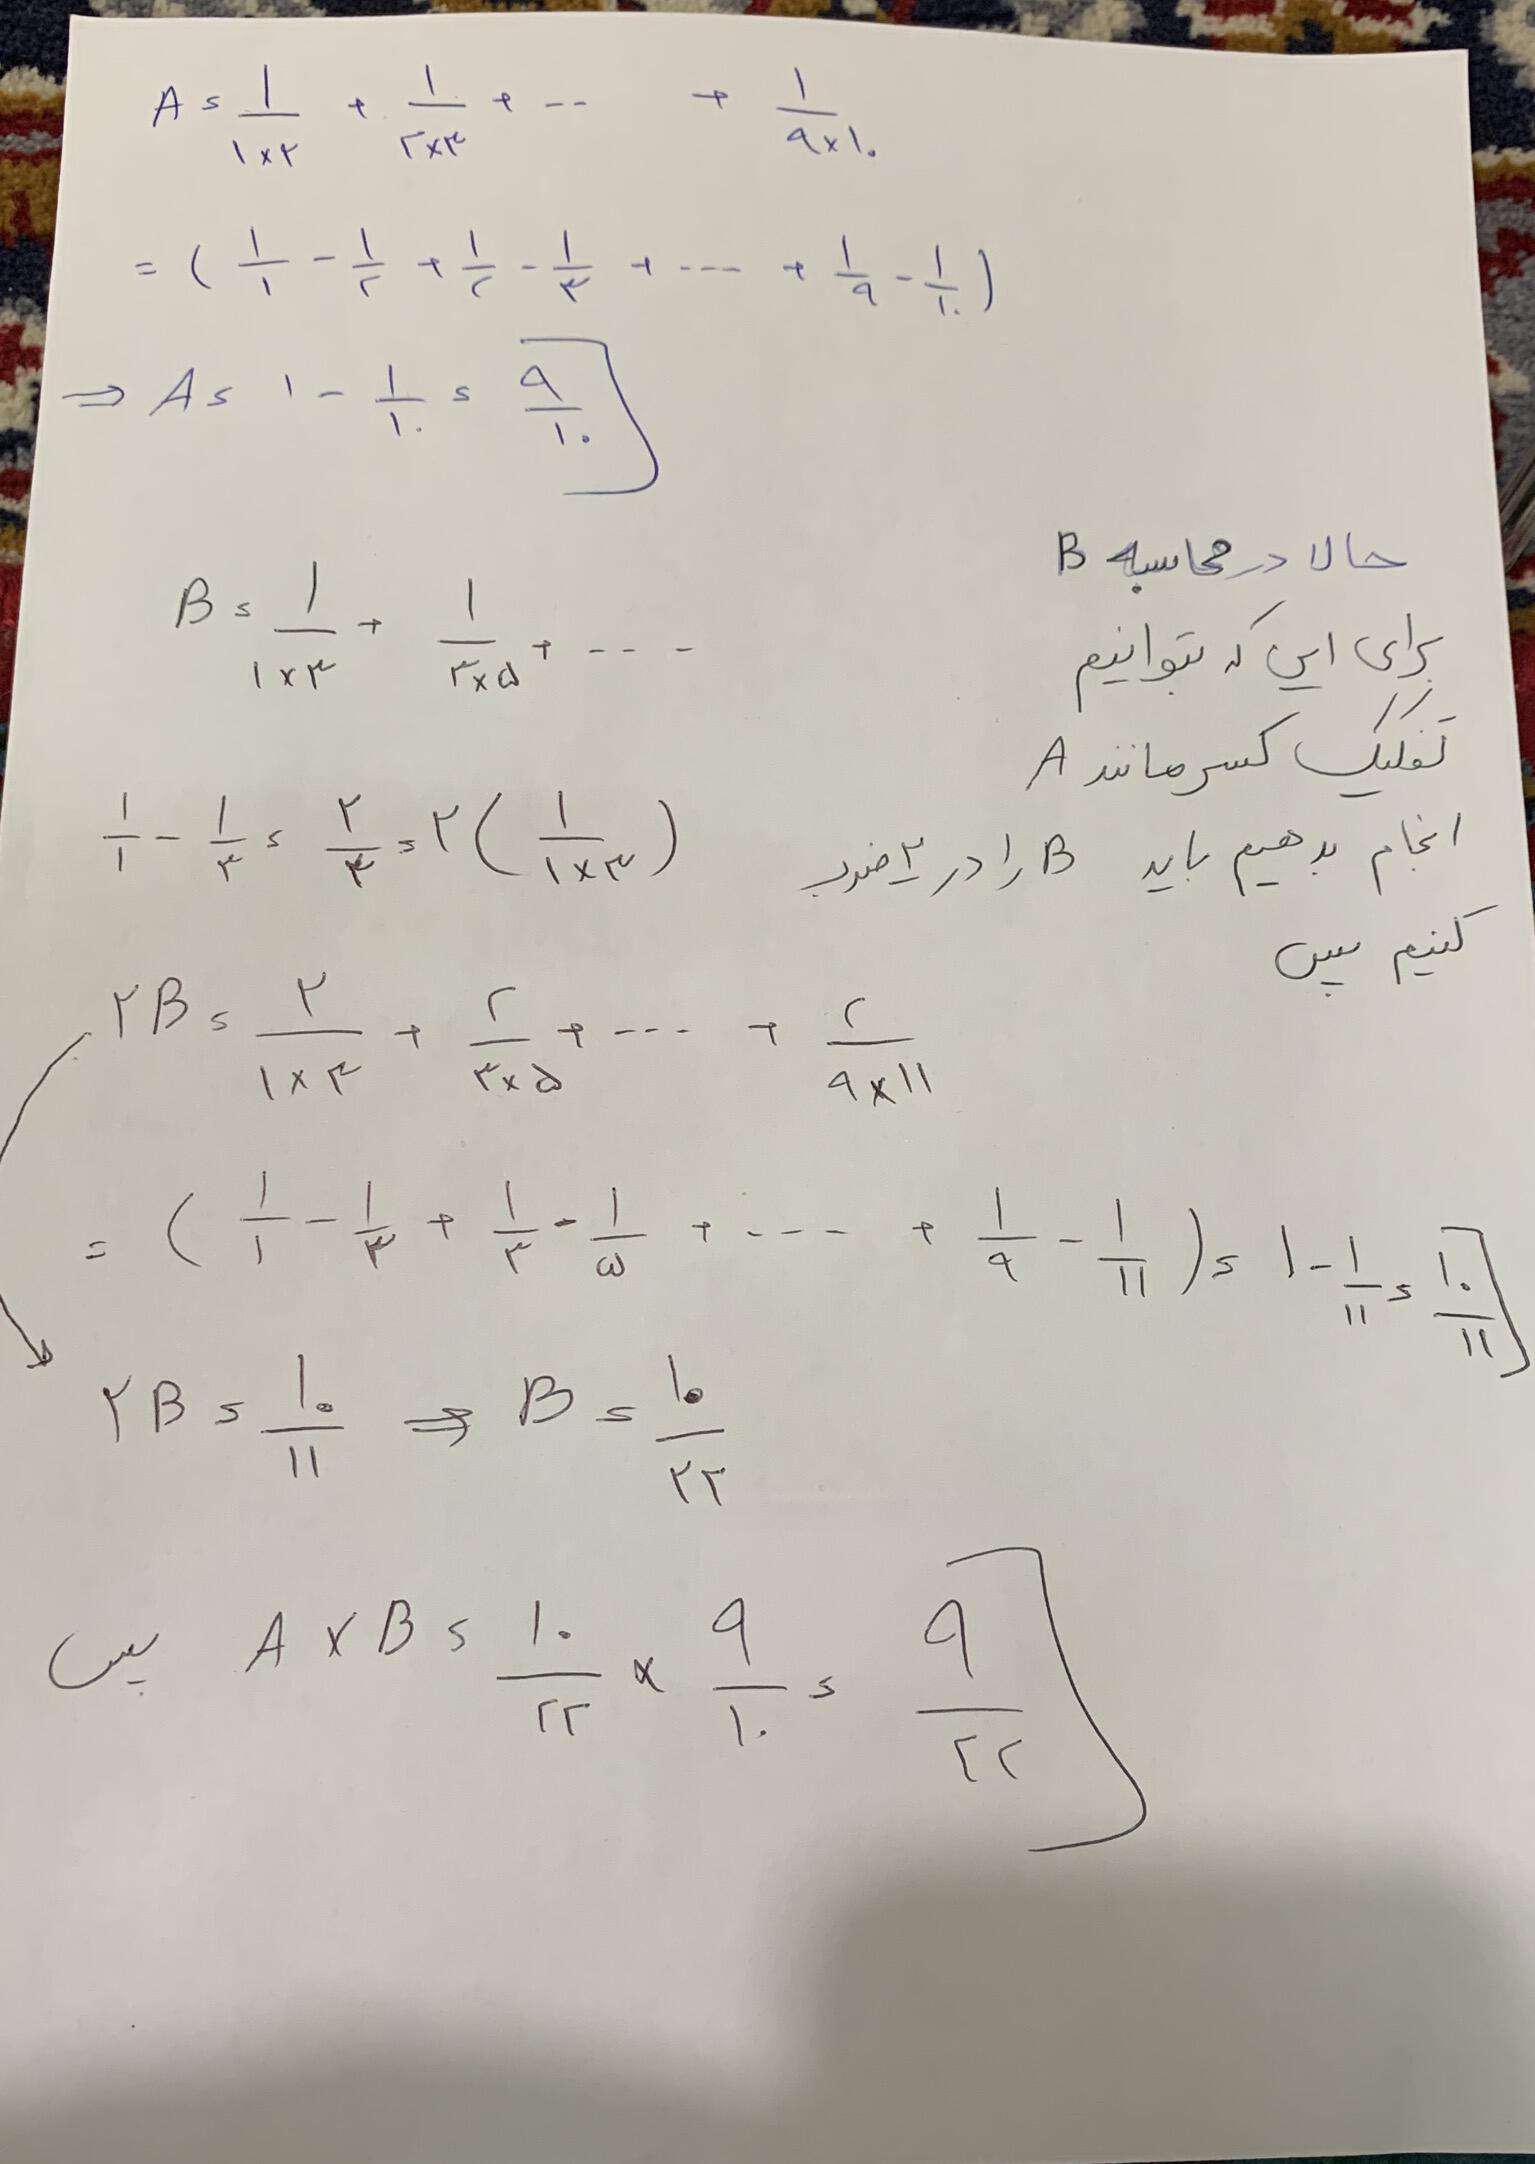 A = ۱/۱×۲ + ۱/۲×۳ + -- + ۱/۹×۱۰
= ( ۱/۱ - ۱/۲ + ۱/۲ - ۱/۳ + --- + ۱/۹ - ۱/۱۰ )
⇒ A = ۱ - ۱/۱۰ = ۹/۱۰ ]
حالا در محاسبه B
برای این که بتوانیم
تفکیک کسر مانند A
انجام بدهیم باید B را در ۲ ضرب
کنیم پس
B = ۱/۱×۳ + ۱/۳×۵ + ---
۱/۱ - ۱/۳ = ۲/۳ = ۲ ( ۱/۱×۳ )
۲B = ۲/۱×۳ + ۲/۳×۵ + --- + ۲/۹×۱۱
= ( ۱/۱ - ۱/۳ + ۱/۳ - ۱/۵ + --- + ۱/۹ - ۱/۱۱ ) = ۱ - ۱/۱۱ = ۱۰/۱۱ ]
۲B = ۱۰/۱۱ ⇒ B = ۱۰/۲۲
پس A × B = ۱۰/۲۲ × ۹/۱۰ = ۹/۲۲ ]